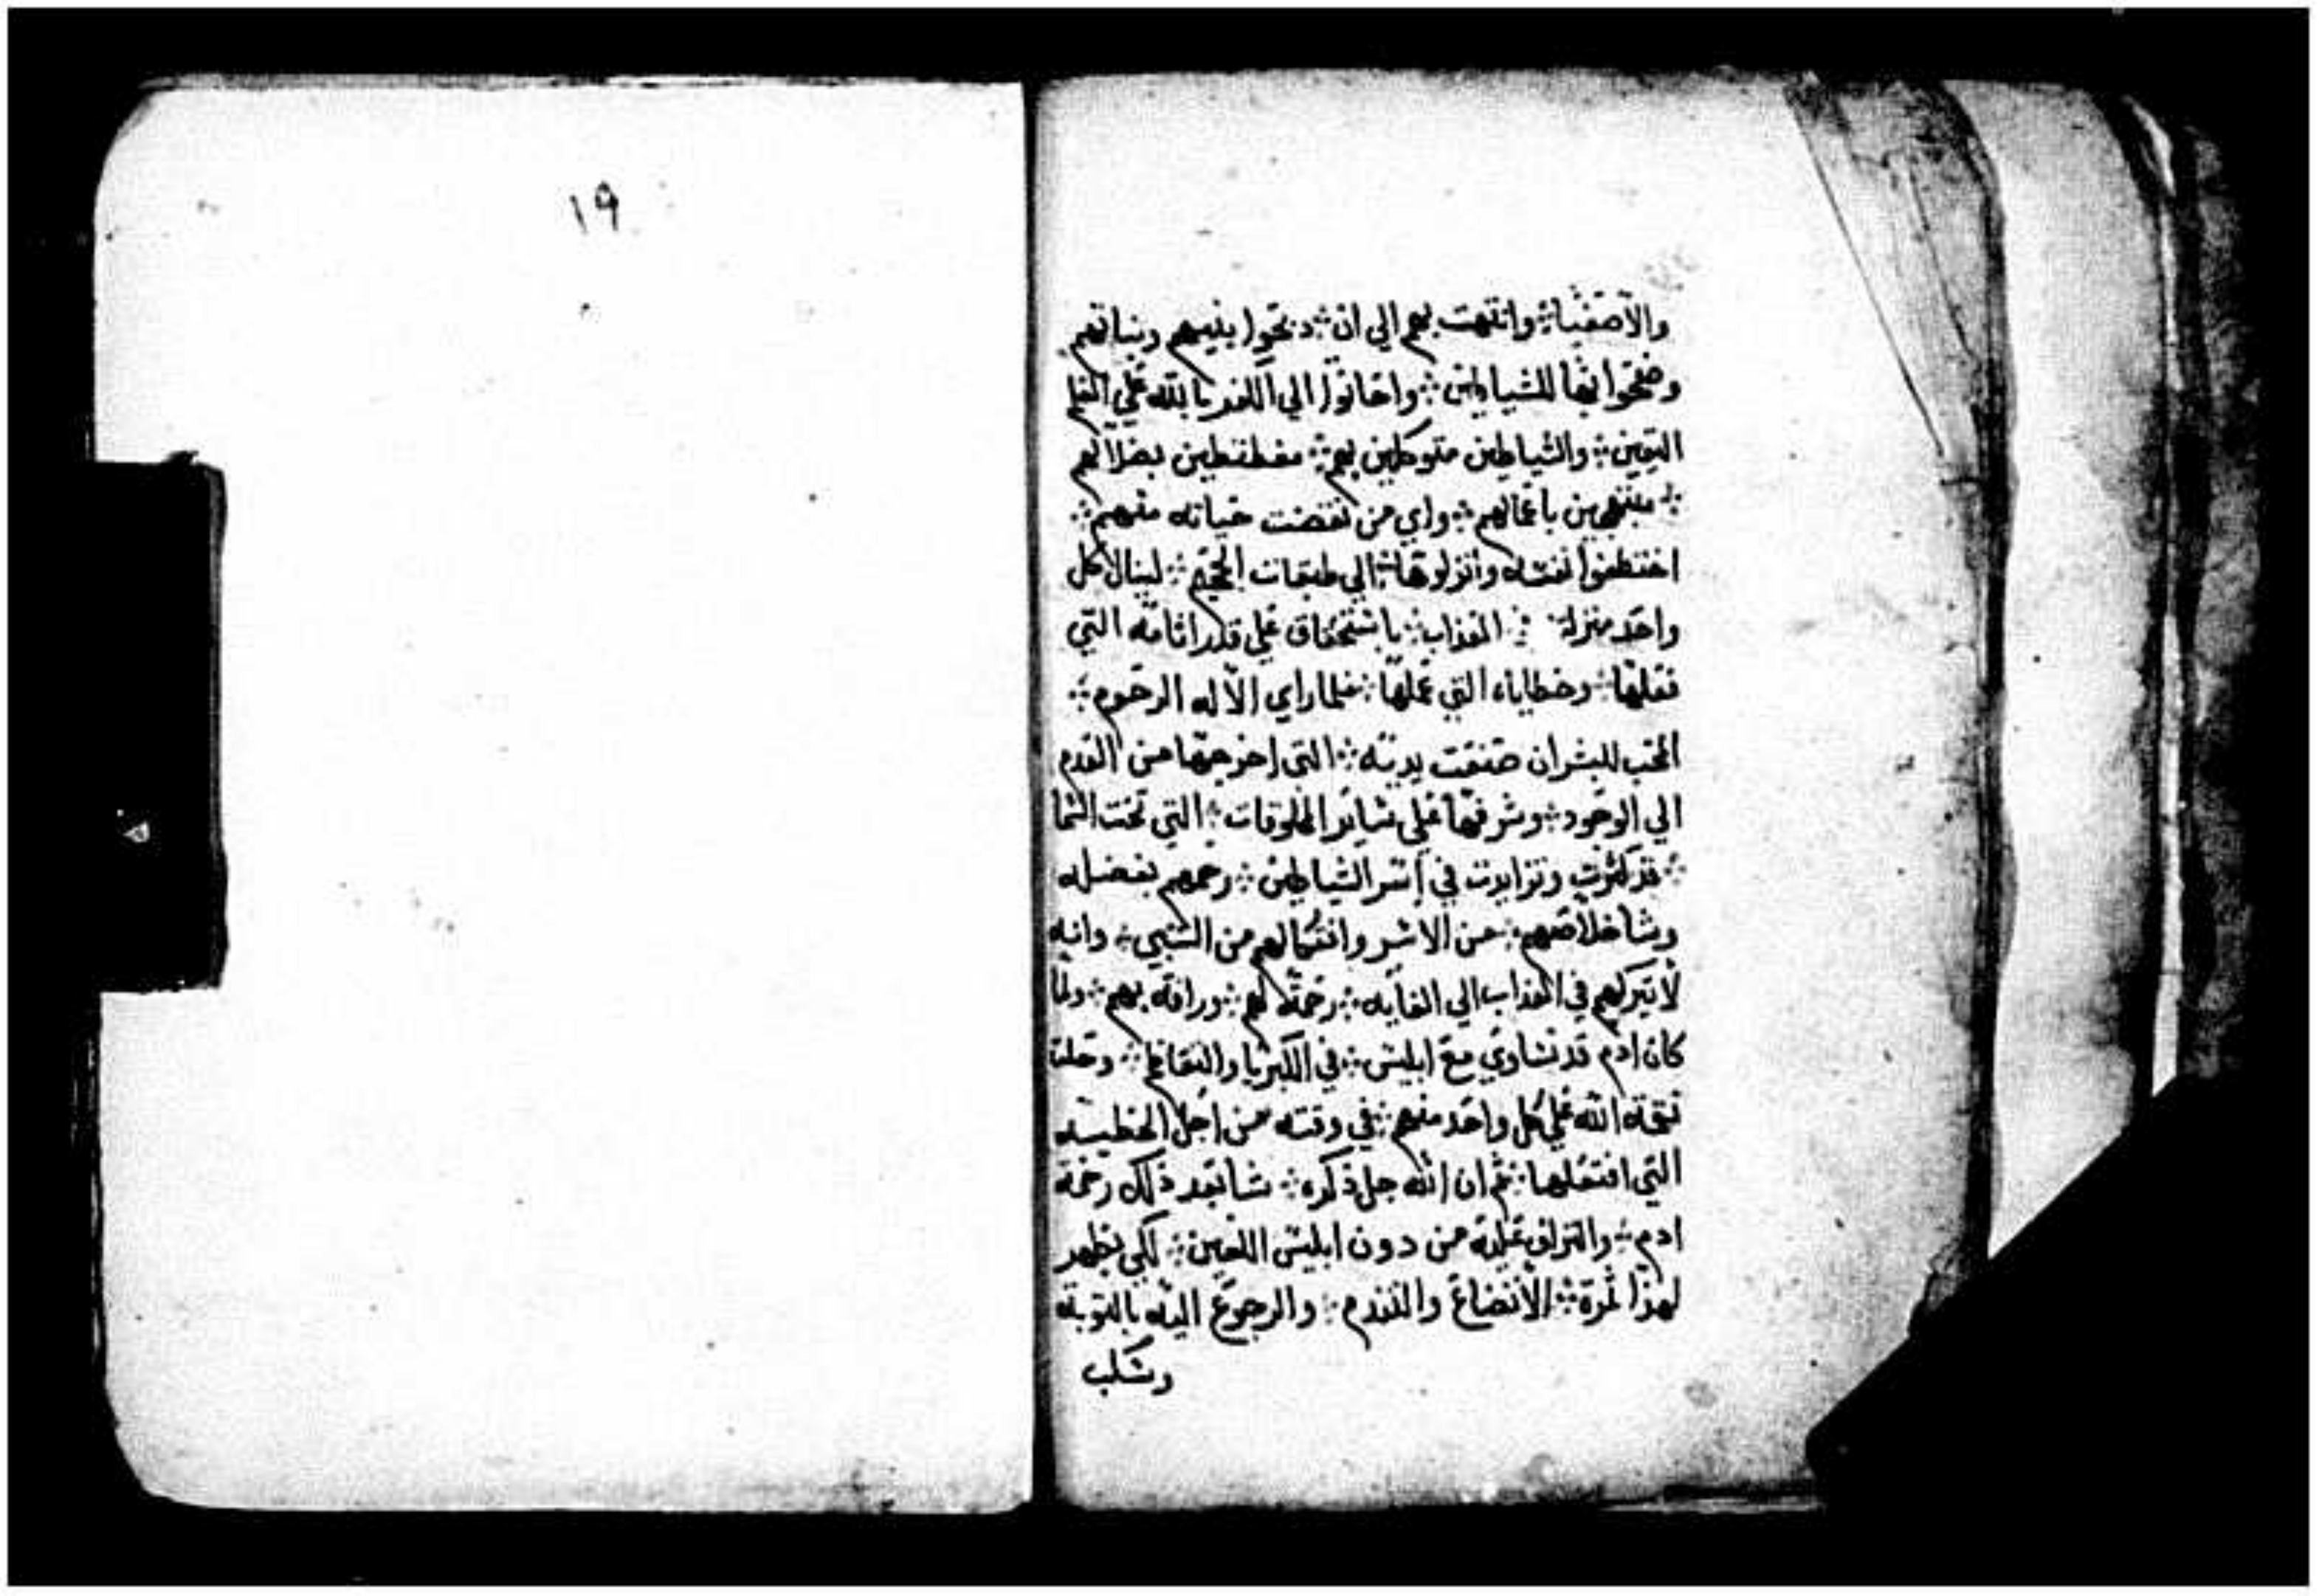 ١٩
والاصفيا ⁘ وانتهت بهم الي ان ⁘ دبحوا بنيهم وبناتهم
وضحوا بها للشياطين ⁘ واحانوا الي الكفر بالله علي
اليقين ⁘ والشياطين متوكلين بهم ⁘ بضلالهم
⁘ مبتهجين باعمالهم ⁘ واي من نقضت حياته منهم ⁘
اختطفوا نفسه وانزلوها ⁘ الي طبقات الجحيم ⁘ لينال كل
واحد منزلة ⁘ العذاب ⁘ باستحقاق علي قدر اثامه التي
فعلها ⁘ وخطاياه التي عملها ⁘ فلما راي الاله الرحوم ⁘
المحب للبشر ان صنعت يديه ⁘ التي اخرجها من العدم
الي الوجود ⁘ وشرفها علي ساير المخلوقات ⁘ التي تحت السما
⁘ قد كثرت وتزايدت في اسر الشياطين ⁘ رحمهم بفضله
وشا خلاصهم ⁘ من الاسر وافتكالهم من السبي ⁘ وانه
لا يتركهم في العذاب الي الغايه ⁘ رحمة لهم ⁘ ورافة بهم ⁘ ولما
كان ادم قد تساوي مع ابليس ⁘ في الكبريا والتعاظم ⁘ وحلت
نقمة الله علي كل واحد منهم ⁘ في وقته من اجل الخطيه
التي افتعلها ⁘ ثم ان الله جل ذكره ⁘ شا بعد ذلك رحمة
ادم ⁘ والتراف عليه من دون ابليس اللعين ⁘ لكي يظهر
لهذا ثمرة ⁘ الاتضاع والتندم ⁘ والرجوع اليه بالتوبه
وسكب